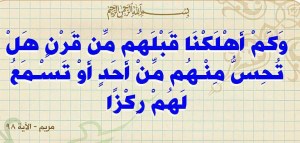 بسم الله الرحمن الرحيم
وَكَمْ أَهْلَكْنَا قَبْلَهُم مِّن قَرْنٍ هَلْ
تُحِسُّ مِنْهُم مِّنْ أَحَدٍ أَوْ تَسْمَعُ
لَهُمْ رِكْزًا
مريم - الآية ٩٨